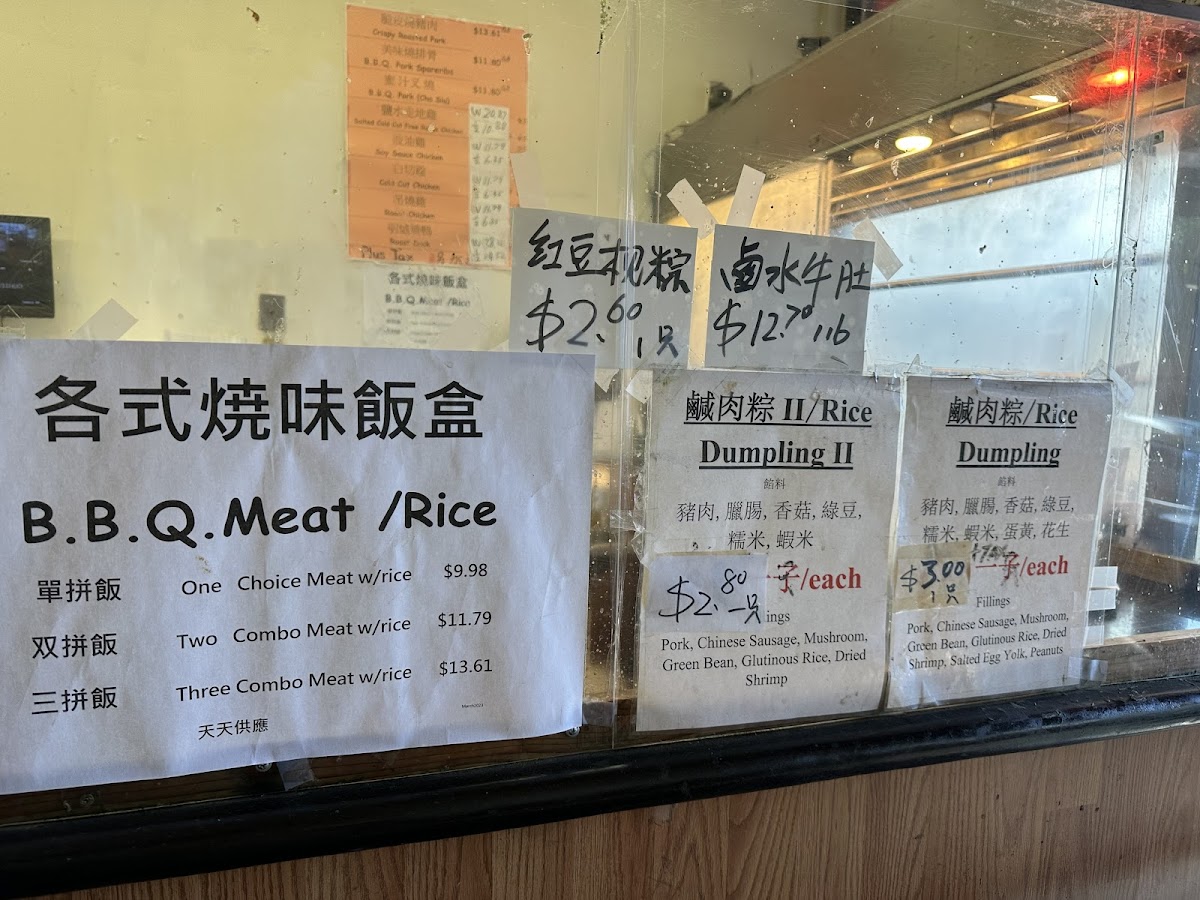 脆皮燒豬肉
Crispy Roasted Pork $13.61
美味燒排骨 $11.80
B.B.Q. Pork Spareribs
蜜汁叉燒 $11.80
B.B.Q. Pork (Cha Siu)
Soy Sauce Chicken
Cold Cut Chicken
Roast Chicken
Roast Duck
Plus Tax
各式燒味飯盒
B.B.Q. Meat /Rice
紅豆枧粽
$2.60 1只
鹵水牛肚
$12.70 1lb
各式燒味飯盒
B.B.Q.Meat /Rice
單拼飯 One Choice Meat w/rice $9.98
双拼飯 Two Combo Meat w/rice $11.79
三拼飯 Three Combo Meat w/rice $13.61
天天供應
鹹肉粽 II/Rice
Dumpling II
餡料
豬肉, 臘腸, 香菇, 綠豆,
糯米, 蝦米
$2.80 一只 /each
ings
Pork, Chinese Sausage, Mushroom,
Green Bean, Glutinous Rice, Dried
Shrimp
鹹肉粽/Rice
Dumpling
餡料
豬肉, 臘腸, 香菇, 綠豆,
糯米, 蝦米, 蛋黃, 花生
$3.00 1只 /each
Fillings
Pork, Chinese Sausage, Mushroom,
Green Bean, Glutinous Rice, Dried
Shrimp, Salted Egg Yolk, Peanuts